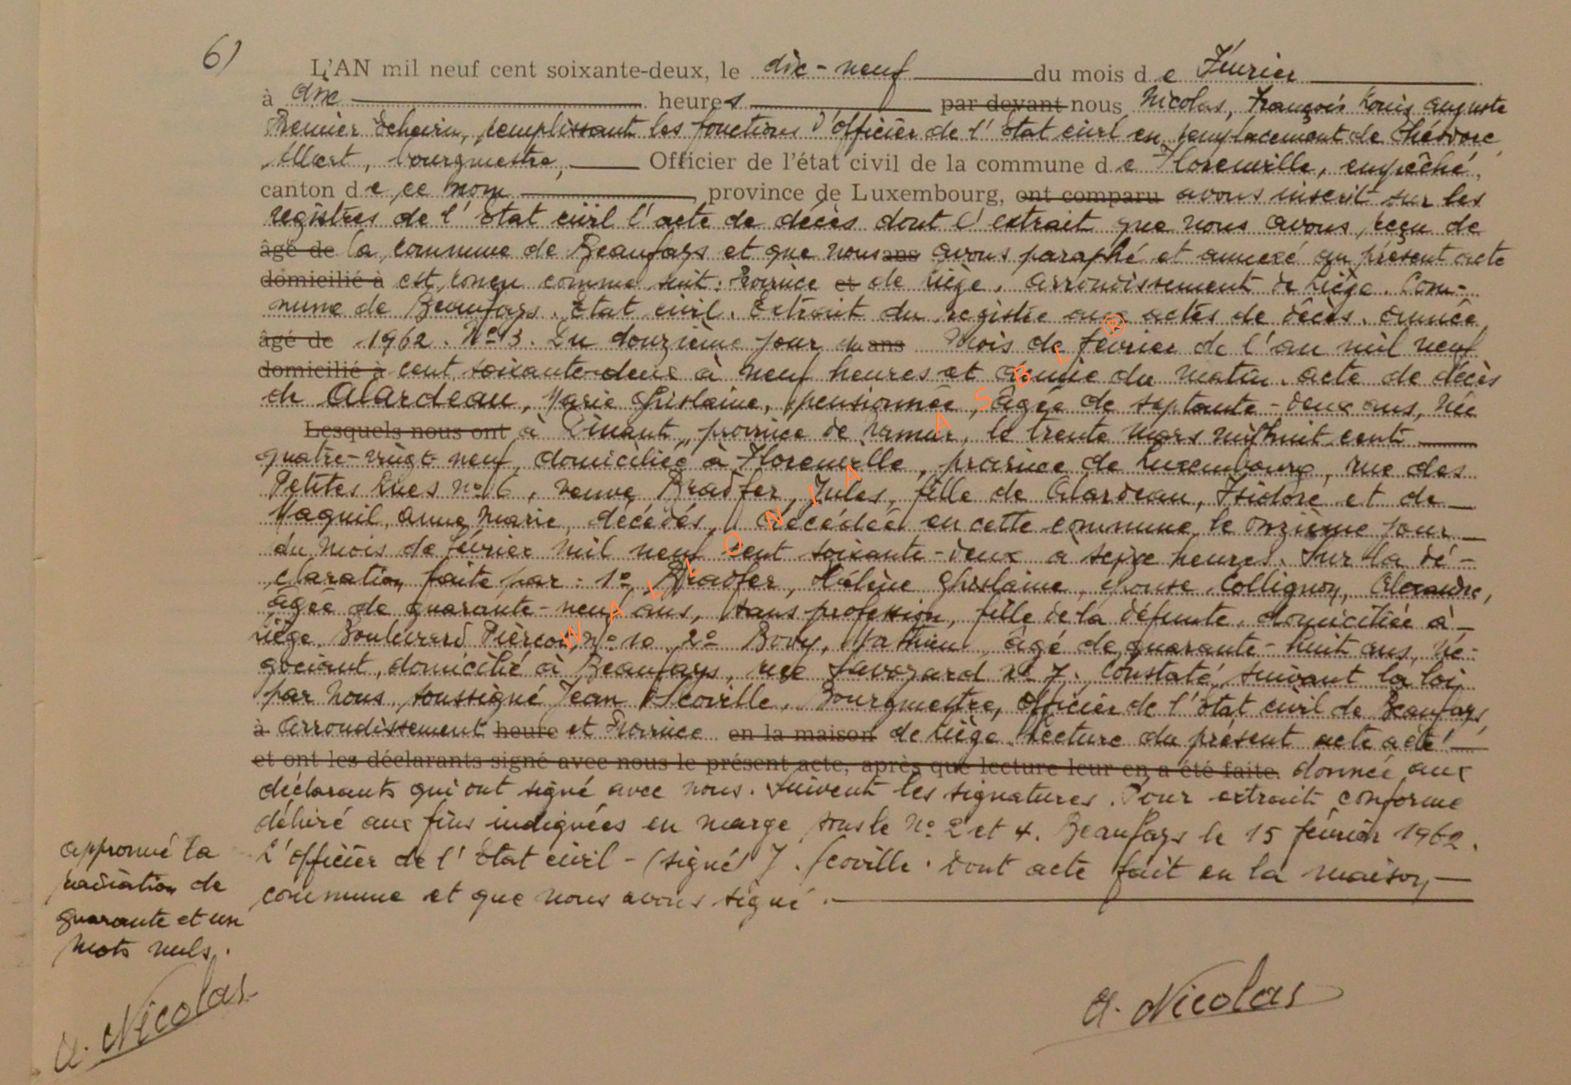 6)
L'AN mil neuf cent soixante-deux, le dix-neuf du mois de Février
à dix heures par devant nous Nicolas, François Louis Auguste
Premier Echevin, remplissant les fonctions d'officier de l'Etat civil en remplacement de Théodore
Albert, bourgmestre, Officier de l'état civil de la commune de Florenville, empêché,
canton de ce nom, province de Luxembourg, ont comparu avons inscrit sur les
registres de l'Etat civil l'acte de décès dont l'extrait que nous avons reçu de
âgé de la commune de Beaufays et que nous ans avons paraphé et annexé au présent acte
domicilié à est conçu comme suit: Province et de Liège, arrondissement de Liège. Com-
mune de Beaufays. Etat civil. Extrait du registre aux actes de décès. Année
âgé de 1962. N° 3. Du douzième jour du ans mois de février de l'an mil neuf
domicilié à cent soixante-deux à neuf heures et demie du matin. Acte de décès
de Alardeau, Marie Ghislaine, pensionnée, âgée de septante-deux ans, née
Lesquels nous ont à Dinant, province de Namur, le trente Mars mil huit cent
quatre-vingt neuf, domiciliée à Florenville, province de Luxembourg, rue des
Petites Rues n° 16, veuve Bradfer, Jules, fille de Alardeau, Isidore et de
Maquil, Anne Marie, décédés, décédée en cette commune le onzième jour
du mois de février mil neuf cent soixante-deux à seize heures. Sur la dé-
claration faite par: 1° Bradfer, Hélène Ghislaine, épouse Collignon, Alexandre,
âgée de quarante-neuf ans, sans profession, fille de la défunte, domiciliée à
Liège Boulevard Piercot, n° 10 2° Bovy, Mathieu âgé de quarante-huit ans, né-
gociant, domicilié à Beaufays, rue n° 7. Constaté, suivant la loi
par nous, soussigné Jean Scoville, Bourgmestre, officier de l'Etat civil de Beaufays
à arrondissement heure et Province en la maison de Liège. Lecture du présent acte a été
et ont les déclarants signé avec nous le présent acte, après que lecture leur en a été faite. donnée aux
déclarants qui ont signé avec nous. Suivent les signatures. Pour extrait conforme
délivré aux fins indiquées en marge sous le N° 2 et 4. Beaufays le 15 février 1962.
L'officier de l'Etat civil - (signé) J. Scoville. Dont acte fait en la maison
commune et que nous avons signé.
approuvé la
radiation de
quarante et un
mots nuls.
A. Nicolas
A. Nicolas
WALLONIA ASBL ®